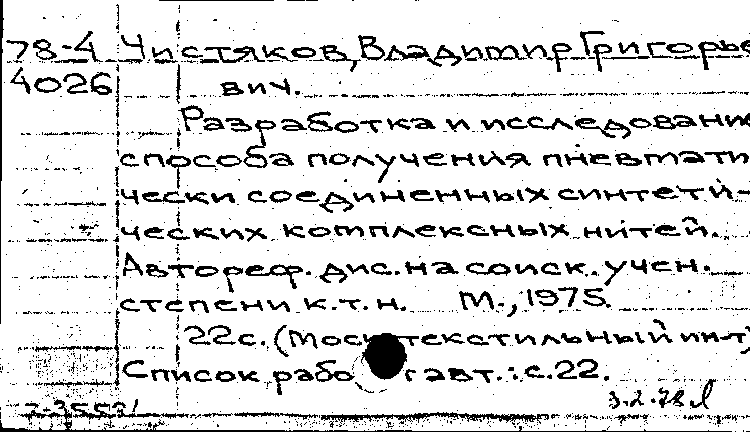 78-4 Чистяков, Владимир Григорье
4026 вич.
Разработка и исследовани
способа получения пневмати
чески соединенных синтети-
ческих комплексных нитей.
Автореф. дис. на соиск. учен.
степени к.т.н. М., 1975.
22с. (Моск. текстильный ин-т)
Список работ авт.: с.22.
3.2.78